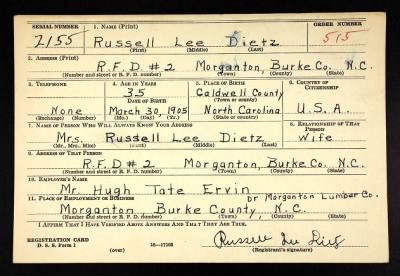 SERIAL NUMBER 1. NAME (Print) ORDER NUMBER
2155 Russell Lee Dietz 515
(First) (Middle) (Last)
2. ADDRESS (Print)
R.F.D #2 Morganton, Burke Co. N.C.
(Number and street or R. F. D. number) (Town) (County) (State)
3. TELEPHONE 4. AGE IN YEARS 5. PLACE OF BIRTH 6. COUNTRY OF CITIZENSHIP
35 Caldwell County
DATE OF BIRTH (Town or county)
None March 30, 1905 North Carolina U.S.A.
(Exchange) (Number) (Mo.) (Day) (Yr.) (State or country)
7. NAME OF PERSON WHO WILL ALWAYS KNOW YOUR ADDRESS 8. RELATIONSHIP OF THAT PERSON
Mrs. Russell Lee Dietz Wife
(Mr., Mrs., Miss) (First) (Middle) (Last)
9. ADDRESS OF THAT PERSON
R.F.D #2 Morganton, Burke Co. N.C.
(Number and street or R. F. D. number) (Town) (County) (State)
10. EMPLOYER'S NAME
Mr. Hugh Tate Ervin
or Morganton Lumber Co.
11. PLACE OF EMPLOYMENT OR BUSINESS
Morganton Burke County, N.C.
(Number and street or R. F. D. number) (Town) (County) (State)
I AFFIRM THAT I HAVE VERIFIED ABOVE ANSWERS AND THAT THEY ARE TRUE.
REGISTRATION CARD
D. S. S. Form 1 (over) 16—17105
Russell Lee Dietz
(Registrant's signature)